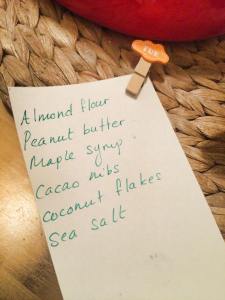 Almond flour
Peanut butter
Maple syrup
Cacao nibs
Coconut flakes
Sea salt